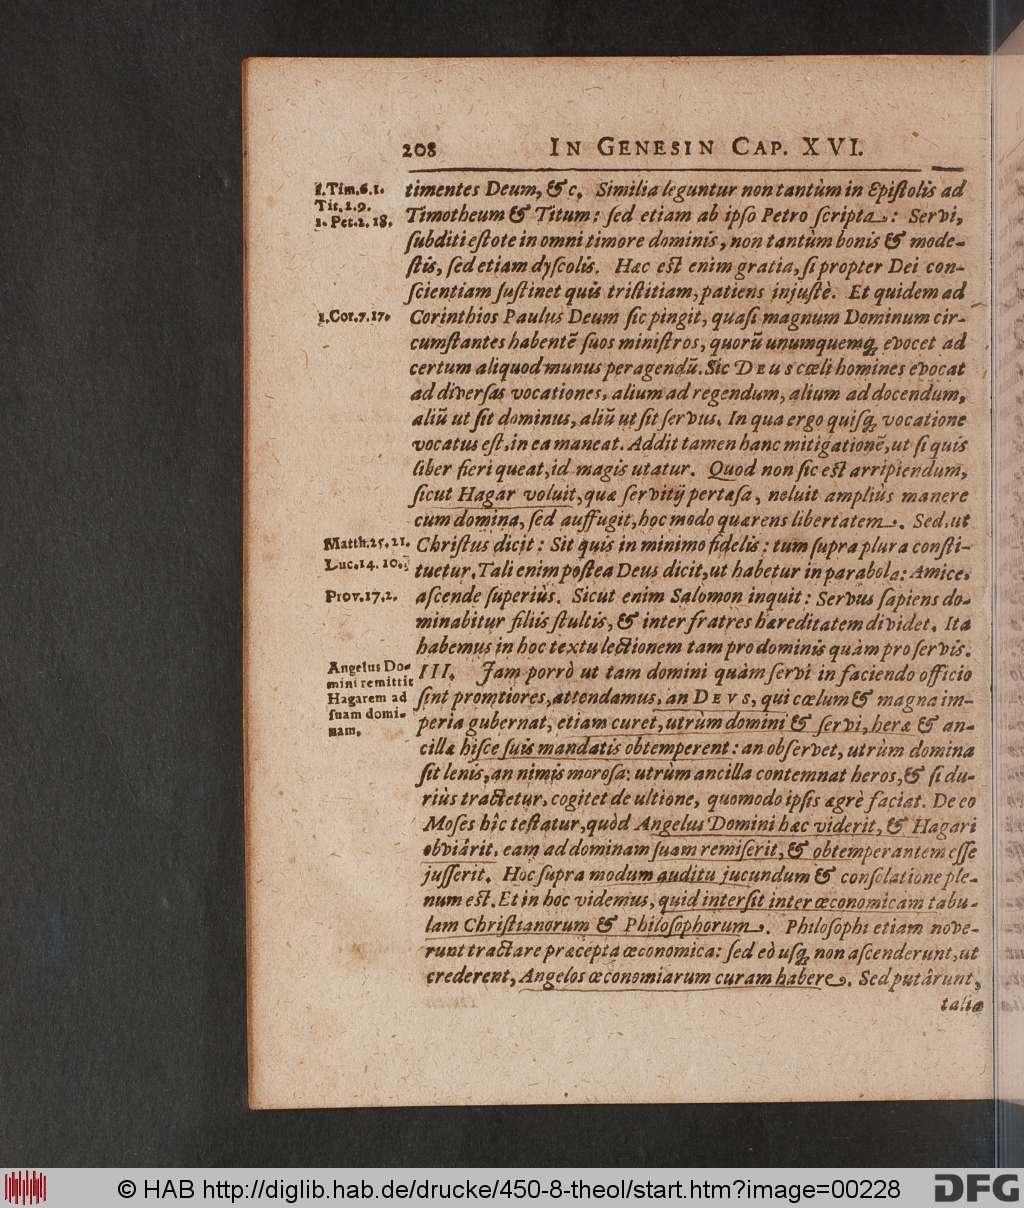 208 IN GENESIN CAP. XVI.
1. Tim. 6. 1.
Tit. 2. 9.
1. Pet. 2. 18.
timentes Deum, &c. Similia leguntur non tantùm in Epiſtolis ad
Timotheum & Titum: ſed etiam ab ipſo Petro ſcripta: Servi,
ſubditi eſtote in omni timore dominis, non tantùm bonis & mode-
ſtis, ſed etiam dyſcolis. Hæc eſt enim gratia, ſi propter Dei con-
ſcientiam ſuſtinet quis triſtitiam, patiens injuſtè. Et quidem ad
1. Cor. 7. 17.
Corinthios Paulus Deum ſic pingit, quaſi magnum Dominum cir-
cumſtantes habentẽ ſuos miniſtros, quorũ unumquemq; evocet ad
certum aliquod munus peragendũ. Sic DEUS cœli homines evocat
ad diverſas vocationes, alium ad regendum, alium ad docendum,
aliũ ut ſit dominus, aliũ ut ſit ſervus. In qua ergo quiſq; vocatione
vocatus eſt, in ea maneat. Addit tamen hanc mitigationẽ, ut ſi quis
liber fieri queat, id magis utatur. Quod non ſic eſt arripiendum,
ſicut Hagar voluit, quæ ſervitij pertæſa, noluit ampliùs manere
cum domina, ſed auffugit, hoc modo quærens libertatem. Sed, ut
Matth. 25. 21.
Chriſtus dicit: Sit quis in minimo fidelis: tum ſupra plura conſti-
Luc. 14. 10.
tuetur. Tali enim poſtea Deus dicit, ut habetur in parabola: Amice,
Prov. 17. 2.
aſcende ſuperiùs. Sicut enim Salomon inquit: Servus ſapiens do-
minabitur filiis ſtultis, & inter fratres hæreditatem dividet. Ita
habemus in hoc textu lectionem tam pro dominis quàm pro ſervis.
Angelus Do-
mini remittit
Hagarem ad
ſuam domi-
nam.
III. Jam porrò ut tam domini quàm ſervi in faciendo officio
ſint promtiores, attendamus, an DEVS, qui cœlum & magna im-
peria gubernat, etiam curet, utrùm domini & ſervi, heræ & an-
cillæ hiſce ſuis mandatis obtemperent: an obſervet, utrùm domina
ſit lenis, an nimis moroſa: utrùm ancilla contemnat heros, & ſi du-
riùs tractetur, cogitet de ultione, quomodo ipſis ægrè faciat. De eo
Moſes hîc teſtatur, quòd Angelus Domini hæc viderit, & Hagari
obviârit, eam ad dominam ſuam remiſerit, & obtemperantem eſſe
juſſerit. Hoc ſupra modum auditu jucundum & conſolatione ple-
num eſt. Et in hoc videmus, quid interſit inter œconomicam tabu-
lam Chriſtianorum & Philoſophorum. Philoſophi etiam nove-
runt tractare præcepta œconomica: ſed eò uſq; non aſcenderunt, ut
crederent, Angelos œconomiarum curam habere. Sed putârunt,
talia
© HAB http://diglib.hab.de/drucke/450-8-theol/start.htm?image=00228
DFG